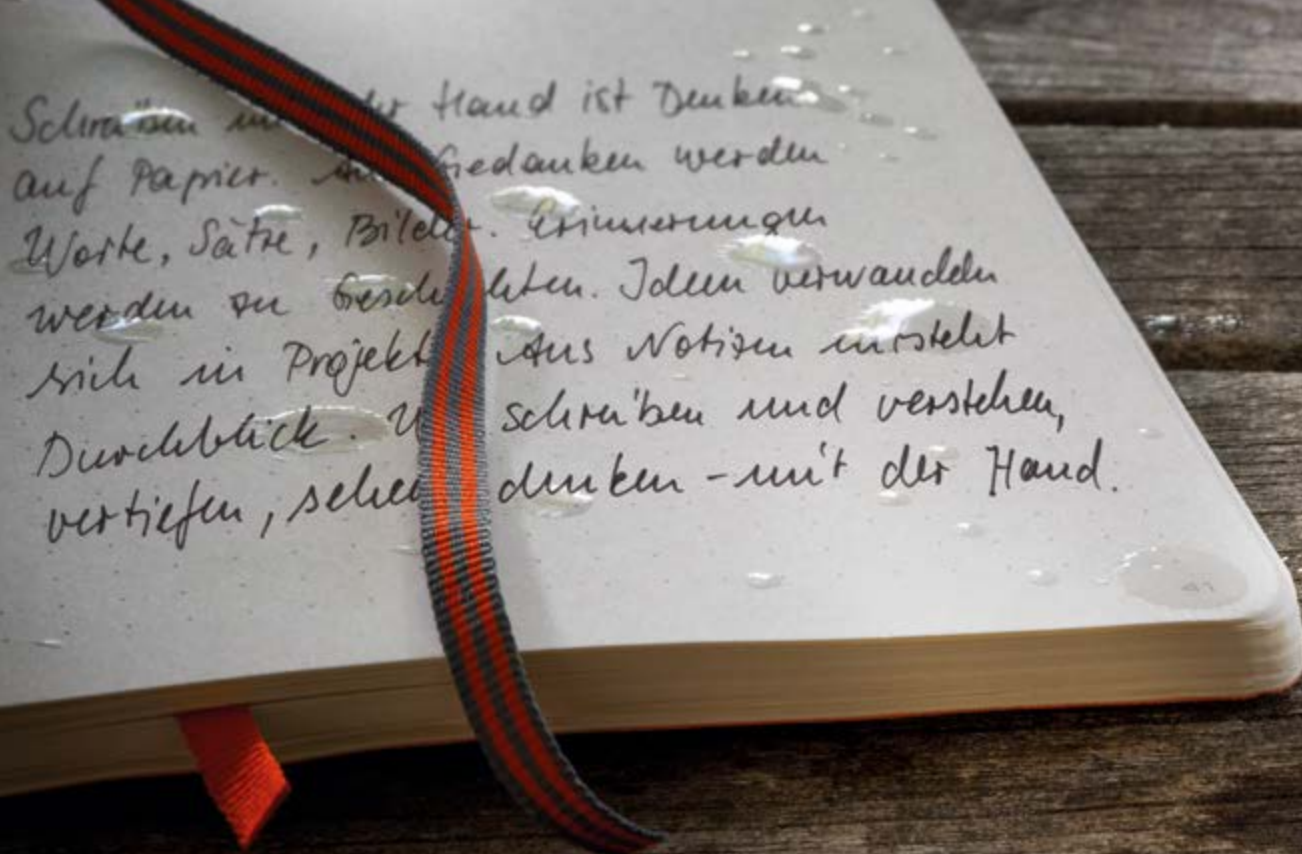 Schreiben der Hand ist Denken
auf Papier. Aus Gedanken werden
Worte, Sätze, Bilder. Erinnerungen
werden zu Geschichten. Ideen verwandeln
sich in Projekte Aus Notizen entsteht
Durchblick. schreiben und verstehen,
vertiefen, sehen denken - mit der Hand.
41